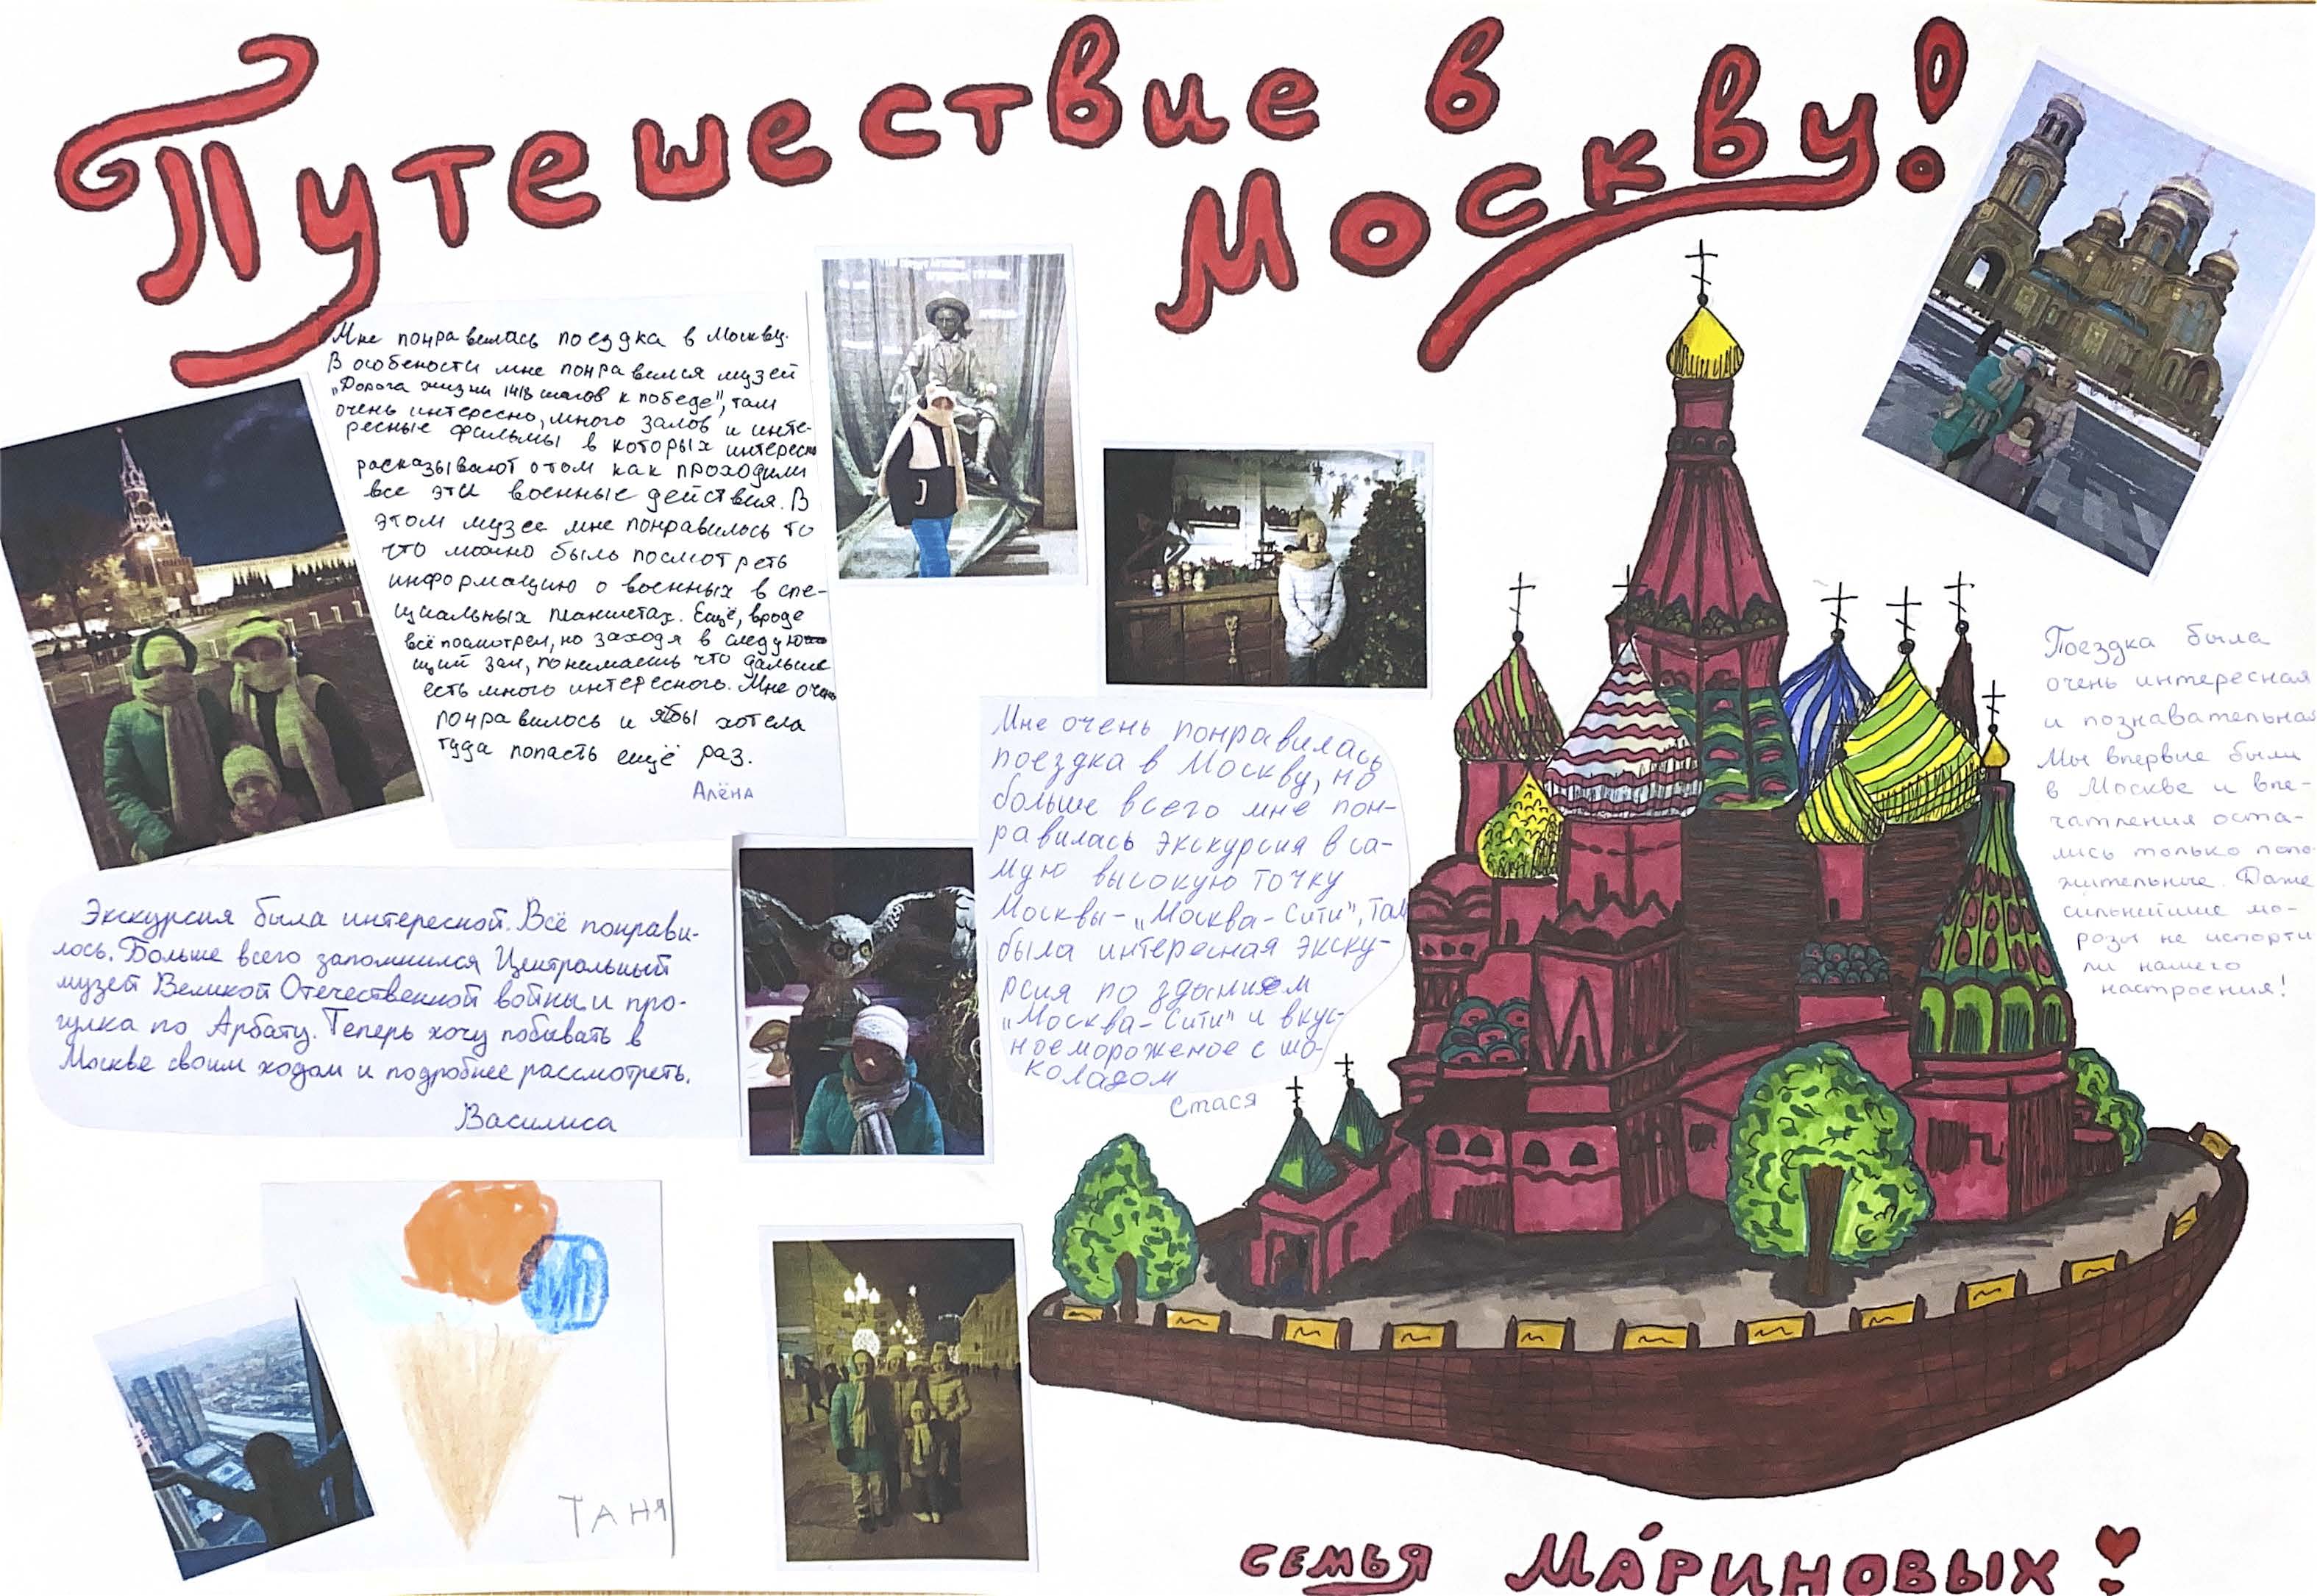 Путешествие в
Москву!
Мне понравилась поездка в Москву.
В особености мне понравился музей
"Дорога жизни 1418 шагов к победе", там
очень интересно, много залов и инте-
ресные фильмы в которых интересно
расказывают о том как проходили
все эти военные действия. В
этом музее мне понравилось то
что можно было посмотреть
информацию о военных в спе-
циальных планшетах. Ещё, вроде
всё посмотрел, но заходя в следую
щий зал, понимаешь что дальше
есть много интересного. Мне очень
понравилось и я бы хотела
туда попасть ещё раз.
Алёна
Экскурсия была интересной. Всё понрави-
лось. Больше всего запомнился Центральный
музей Великой Отечественной войны и про-
гулка по Арбату. Теперь хочу побывать в
Москве своим ходом и подробнее рассмотреть.
Василиса
Мне очень понравилась
поездка в Москву, но
больше всего мне пон-
равилась экскурсия в са-
мую высокую точку
Москвы - "Москва-Сити", там
была интересная экску-
рсия по зданием
"Москва-Сити" и вкус-
ное мороженое с шо-
коладом
Стася
Поездка была
очень интересная
и познавательная
Мы впервые были
в Москве и впе-
чатления оста-
лись только поло-
жительные. Даже
сильнейшие мо-
розы не испорти
ли нашего
настроения!
ТАНЯ
семья МА́РИНОВЫХ!